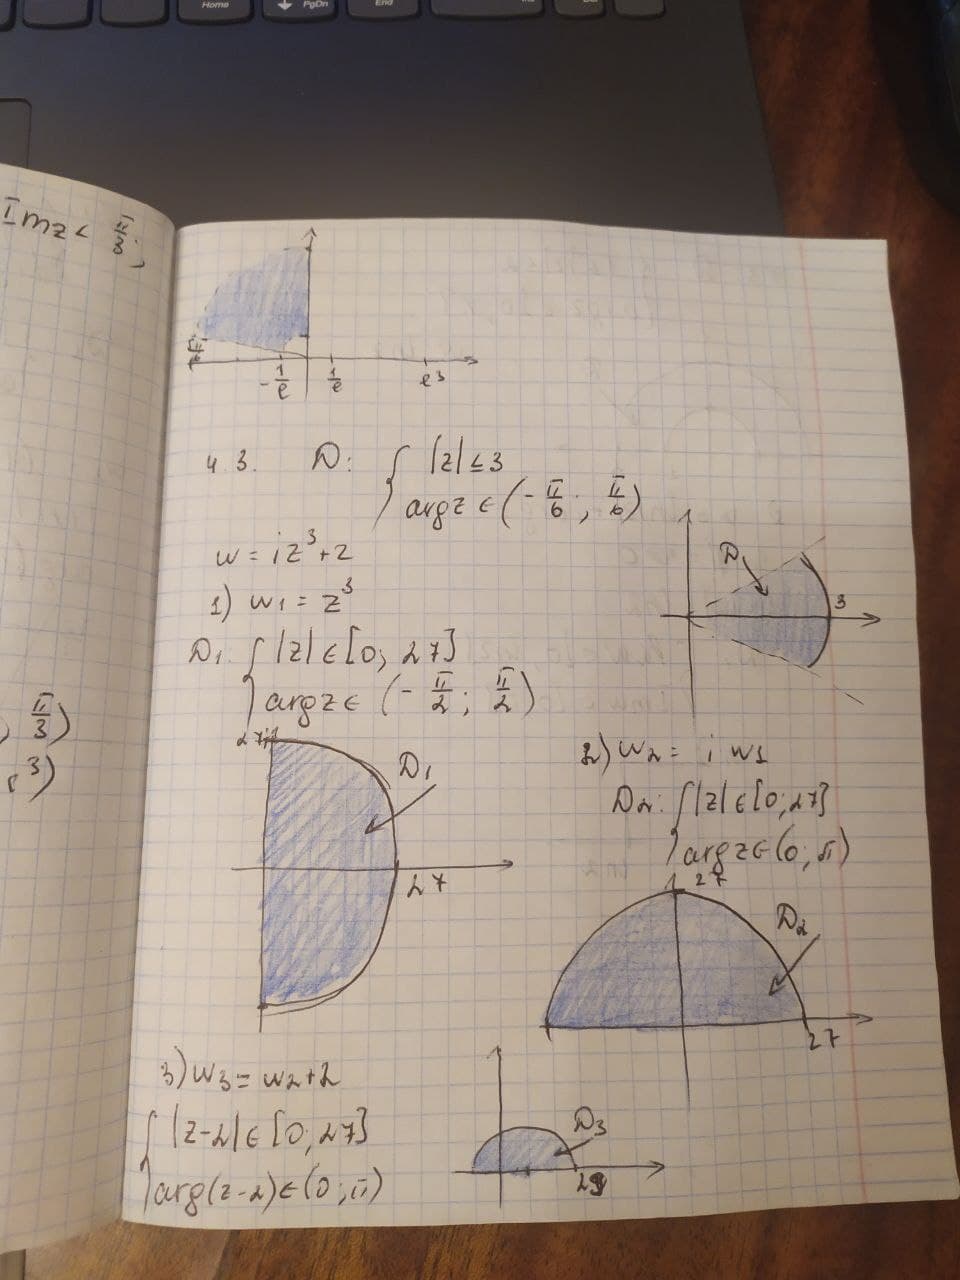 Home
PgDn
End
Imz < π/3;
, π/3)
, e³)
π/6
-1/e
1/e
e³
4.3. D: { |z| ≤ 3
arg z ∈ (-π/6; π/6)
w = iz³+2
1) w₁ = z³
D
3
D₁: { |z| ∈ [0; 27]
arg z ∈ (-π/2; π/2)
27i
D₁
27
2) w₂ = i w₁
D₂: { |z| ∈ [0; 27]
arg z ∈ (0; π)
27
D₂
27
3) w₃ = w₂+2
{ |z-2| ∈ [0; 27]
arg(z-2) ∈ (0; π)
D₃
29